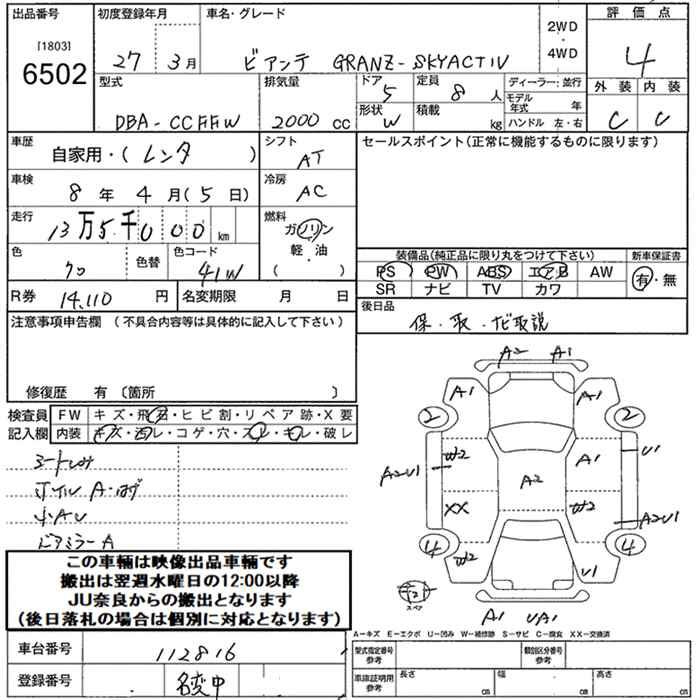 出品番号 初度登録年月 車名・グレード 2WD・4WD 評価点
[1803] 27年 3月 ビアンテ GRANZ-SKYACTIV 4
6502
型式 排気量 ドア 5 定員 8人 ディーラー・並行 外装 内装
DBA-CCFFW 2000cc 形状 W 積載 kg モデル年式 年 C C
ハンドル 左・右
車歴 自家用・(レンタ) シフト AT セールスポイント(正常に機能するものに限ります)
車検 8年4月(5日) 冷房 AC
走行 13万5千000km 燃料 ガソリン 軽・油 ( )
色 クロ 色替 色コード 41W
装備品(純正品に限り丸をつけて下さい) 新車保証書
PS PW ABS エアB AW 有・無
SR ナビ TV カワ
R券 14,110円 名変期限 月 日 後日品
保・取・ナビ取説
注意事項申告欄 (不具合内容等は具体的に記入して下さい)
修復歴 有 〔箇所 〕
検査員 FW キズ・飛石・ヒビ割・リペア跡・X要
記入欄 内装 キズ・汚レ・コゲ・穴・スレ・キレ・破レ
A2 A1
A1 A1
2 2
A2U1 W2 A1 U1
A2
XX W2 A2U1
4 4
W2 U1
スペア
A1 UA1
ホイル A・ハゲ
小AU
ドアミラーA
この車輌は映像出品車輌です
搬出は翌週水曜日の12:00以降
JU奈良からの搬出となります
(後日落札の場合は個別に対応となります)
A−キズ E−エクボ U−凹み W−補修跡 S−サビ C−腐食 XX−交換済
車台番号 112816 型式指定番号 参考 類別区分番号 参考
登録番号 名変中 車庫証明用 参考 長さ cm 幅 cm 高さ cm